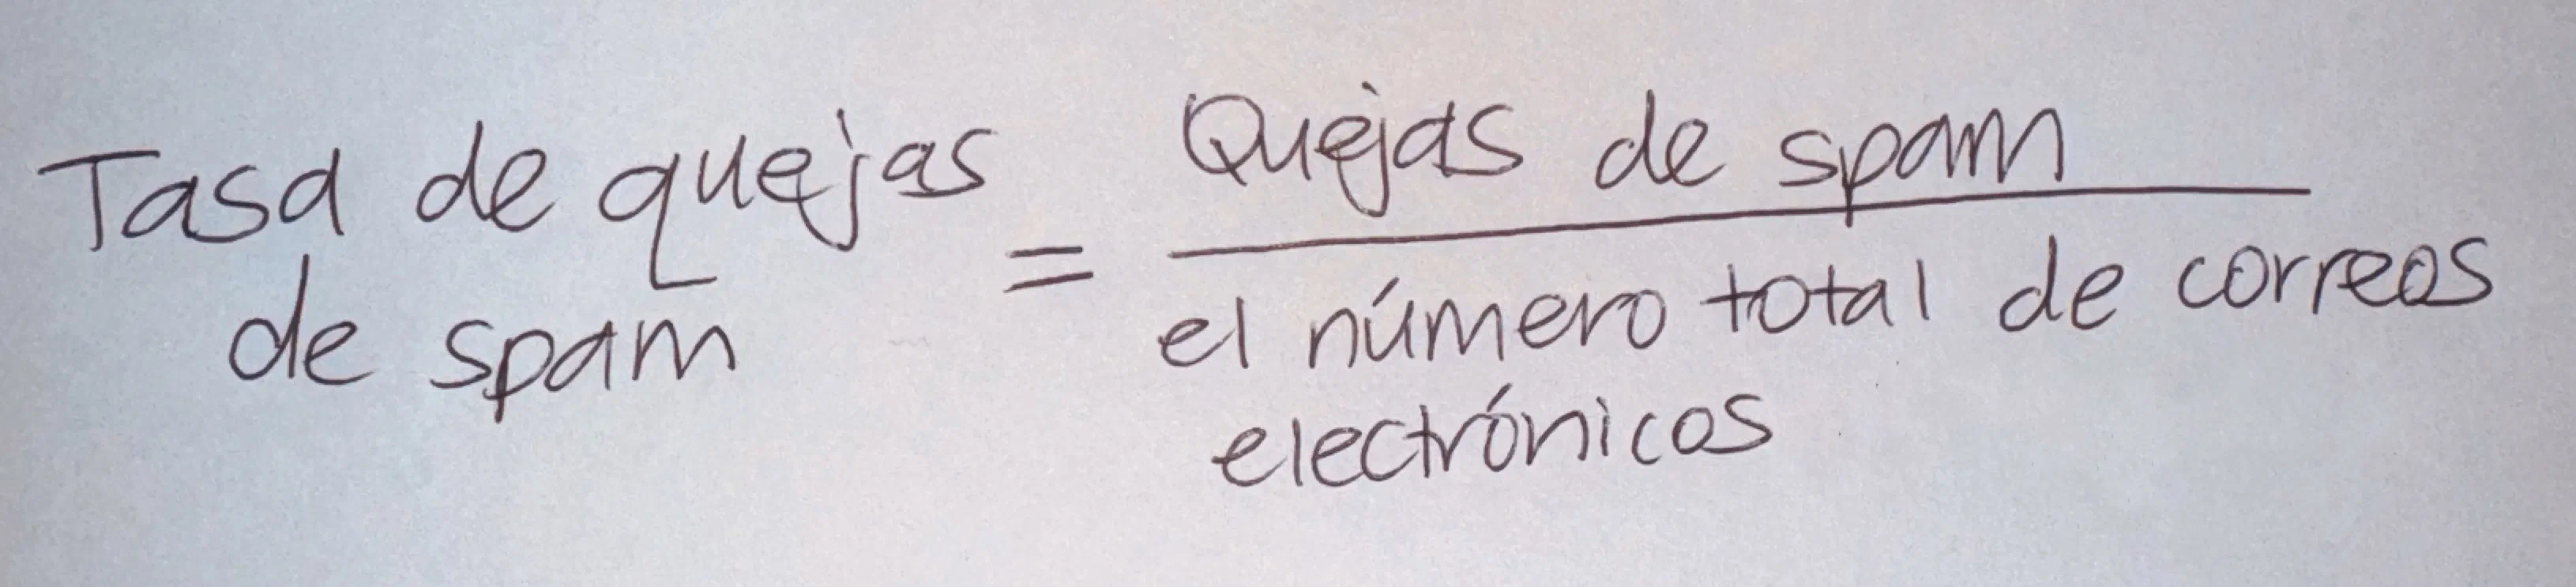 Tasa de quejas
de spam
=
Quejas de spam
el número total de correos
electrónicos